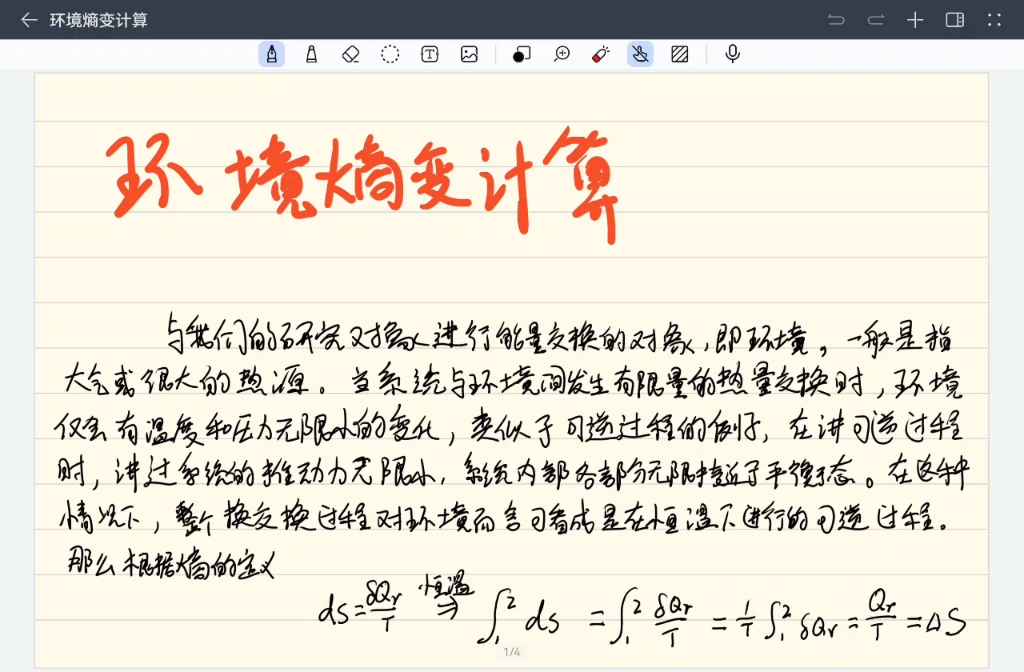 环境熵变计算
环境熵变计算
与我们的研究对象进行能量交换的对象，即环境。一般是指
大气或很大的热源。当系统与环境间发生有限量的热量交换时，环境
仅会有温度和压力无限小的变化，类似于可逆过程的例子，在讲可逆过程
时，讲过系统的推动力无限小，系统内部各部分无限接近于平衡态。在这种
情况下，整个换交换过程对环境而言可看成是在恒温下进行的可逆过程。
那么根据熵的定义
dS = δQr/T 恒温⇒ ∫₁² dS = ∫₁² δQr/T = 1/T ∫₁² δQr = Qr/T = ΔS
1/4